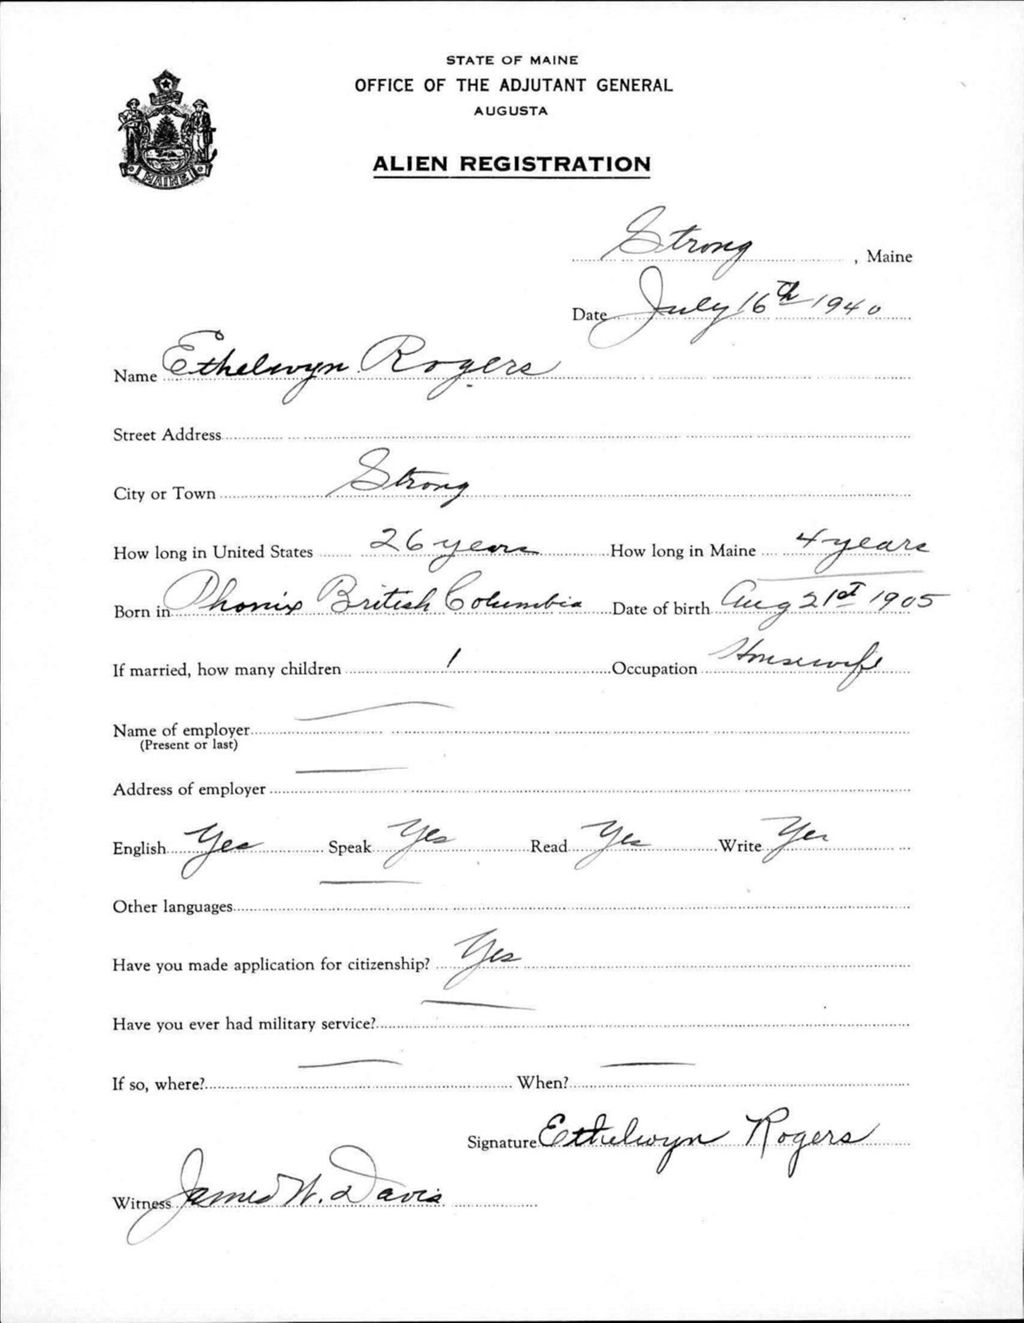 STATE OF MAINE
OFFICE OF THE ADJUTANT GENERAL
AUGUSTA
ALIEN REGISTRATION
MAINE
Strong, Maine
Date July 16th 1940
Name Ethelwyn Rogers
Street Address
City or Town Strong
How long in United States 26 years How long in Maine 4 years
Born in Phonix British Columbia Date of birth Aug 21st 1905
If married, how many children 1 Occupation Housewife
Name of employer
(Present or last)
Address of employer
English Yes Speak Yes Read Yes Write Yes
Other languages
Have you made application for citizenship? Yes
Have you ever had military service?
If so, where? When?
Signature Ethelwyn Rogers
Witness James W. Davis